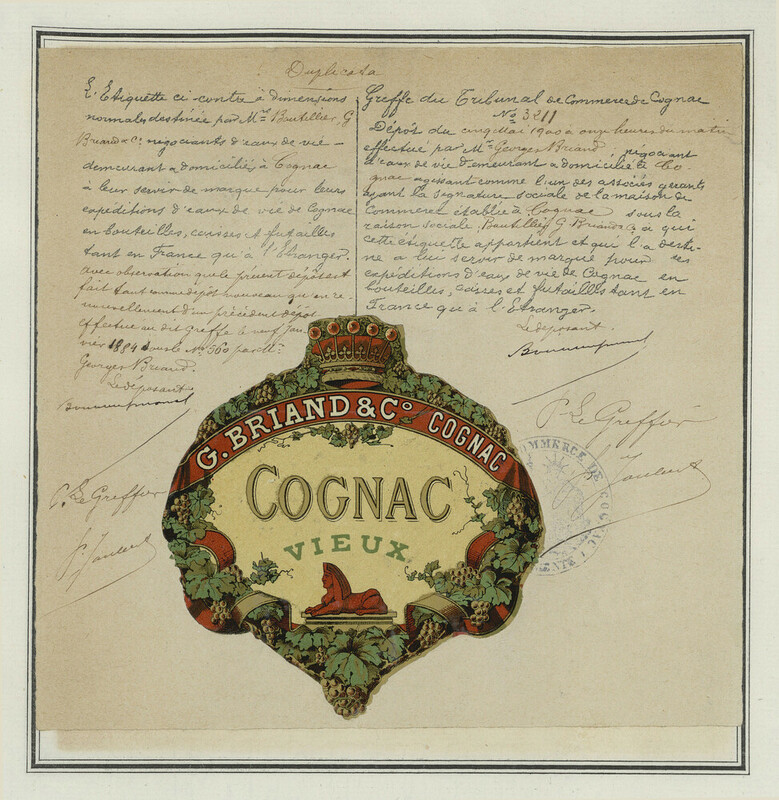 Duplicata
L'Etiquette ci contre à dimensions
normales destinée par Mrs Boutillier, G
Briand & Co, négociants d'eaux de vie
demeurant & domiciliés à Cognac
à leur servir de marque pour leurs
expéditions d'eaux de vie de Cognac
en bouteilles, caisses et futailles
tant en France qu'à l'Etranger.
avec observation que le présent dépôt est
fait tant comme dépôt nouveau qu'en re-
nouvellement d'un précédent dépôt
effectué au dit greffe le neuf Jan-
vier 1884 sous le No 560 par Mr
Georges Briand.
Le déposant
P. Le Greffier
Greffe du Tribunal de Commerce de Cognac
No 3211
Dépôt du cinq Mai 1900 à onze heures du matin
effectué par Mr Georges Briand, négociant
d'eaux de vie demeurant & domicilié à Co-
gnac agissant comme l'un des associés gérants
ayant la signature sociale de la maison de
Commerce établie à Cognac sous la
raison sociale, Boutillier G. Briand & Co à qui
cette étiquette appartient et qui l'a desti-
née à lui servir de marque pour ses
expéditions d'eaux de vie de Cognac en
bouteilles, caisses et futailles tant en
France qu'à l'Etranger.
Le déposant.
P. Le Greffier
COMMERCE DE COGNAC
G. BRIAND & Co COGNAC
COGNAC
VIEUX